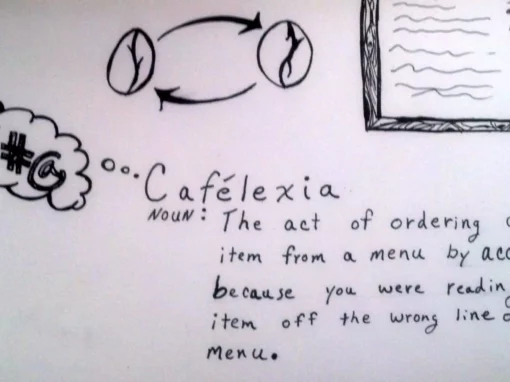 #@
Cafélexia
NOUN: The act of ordering
item from a menu by
because you were
item off the wrong line
menu.